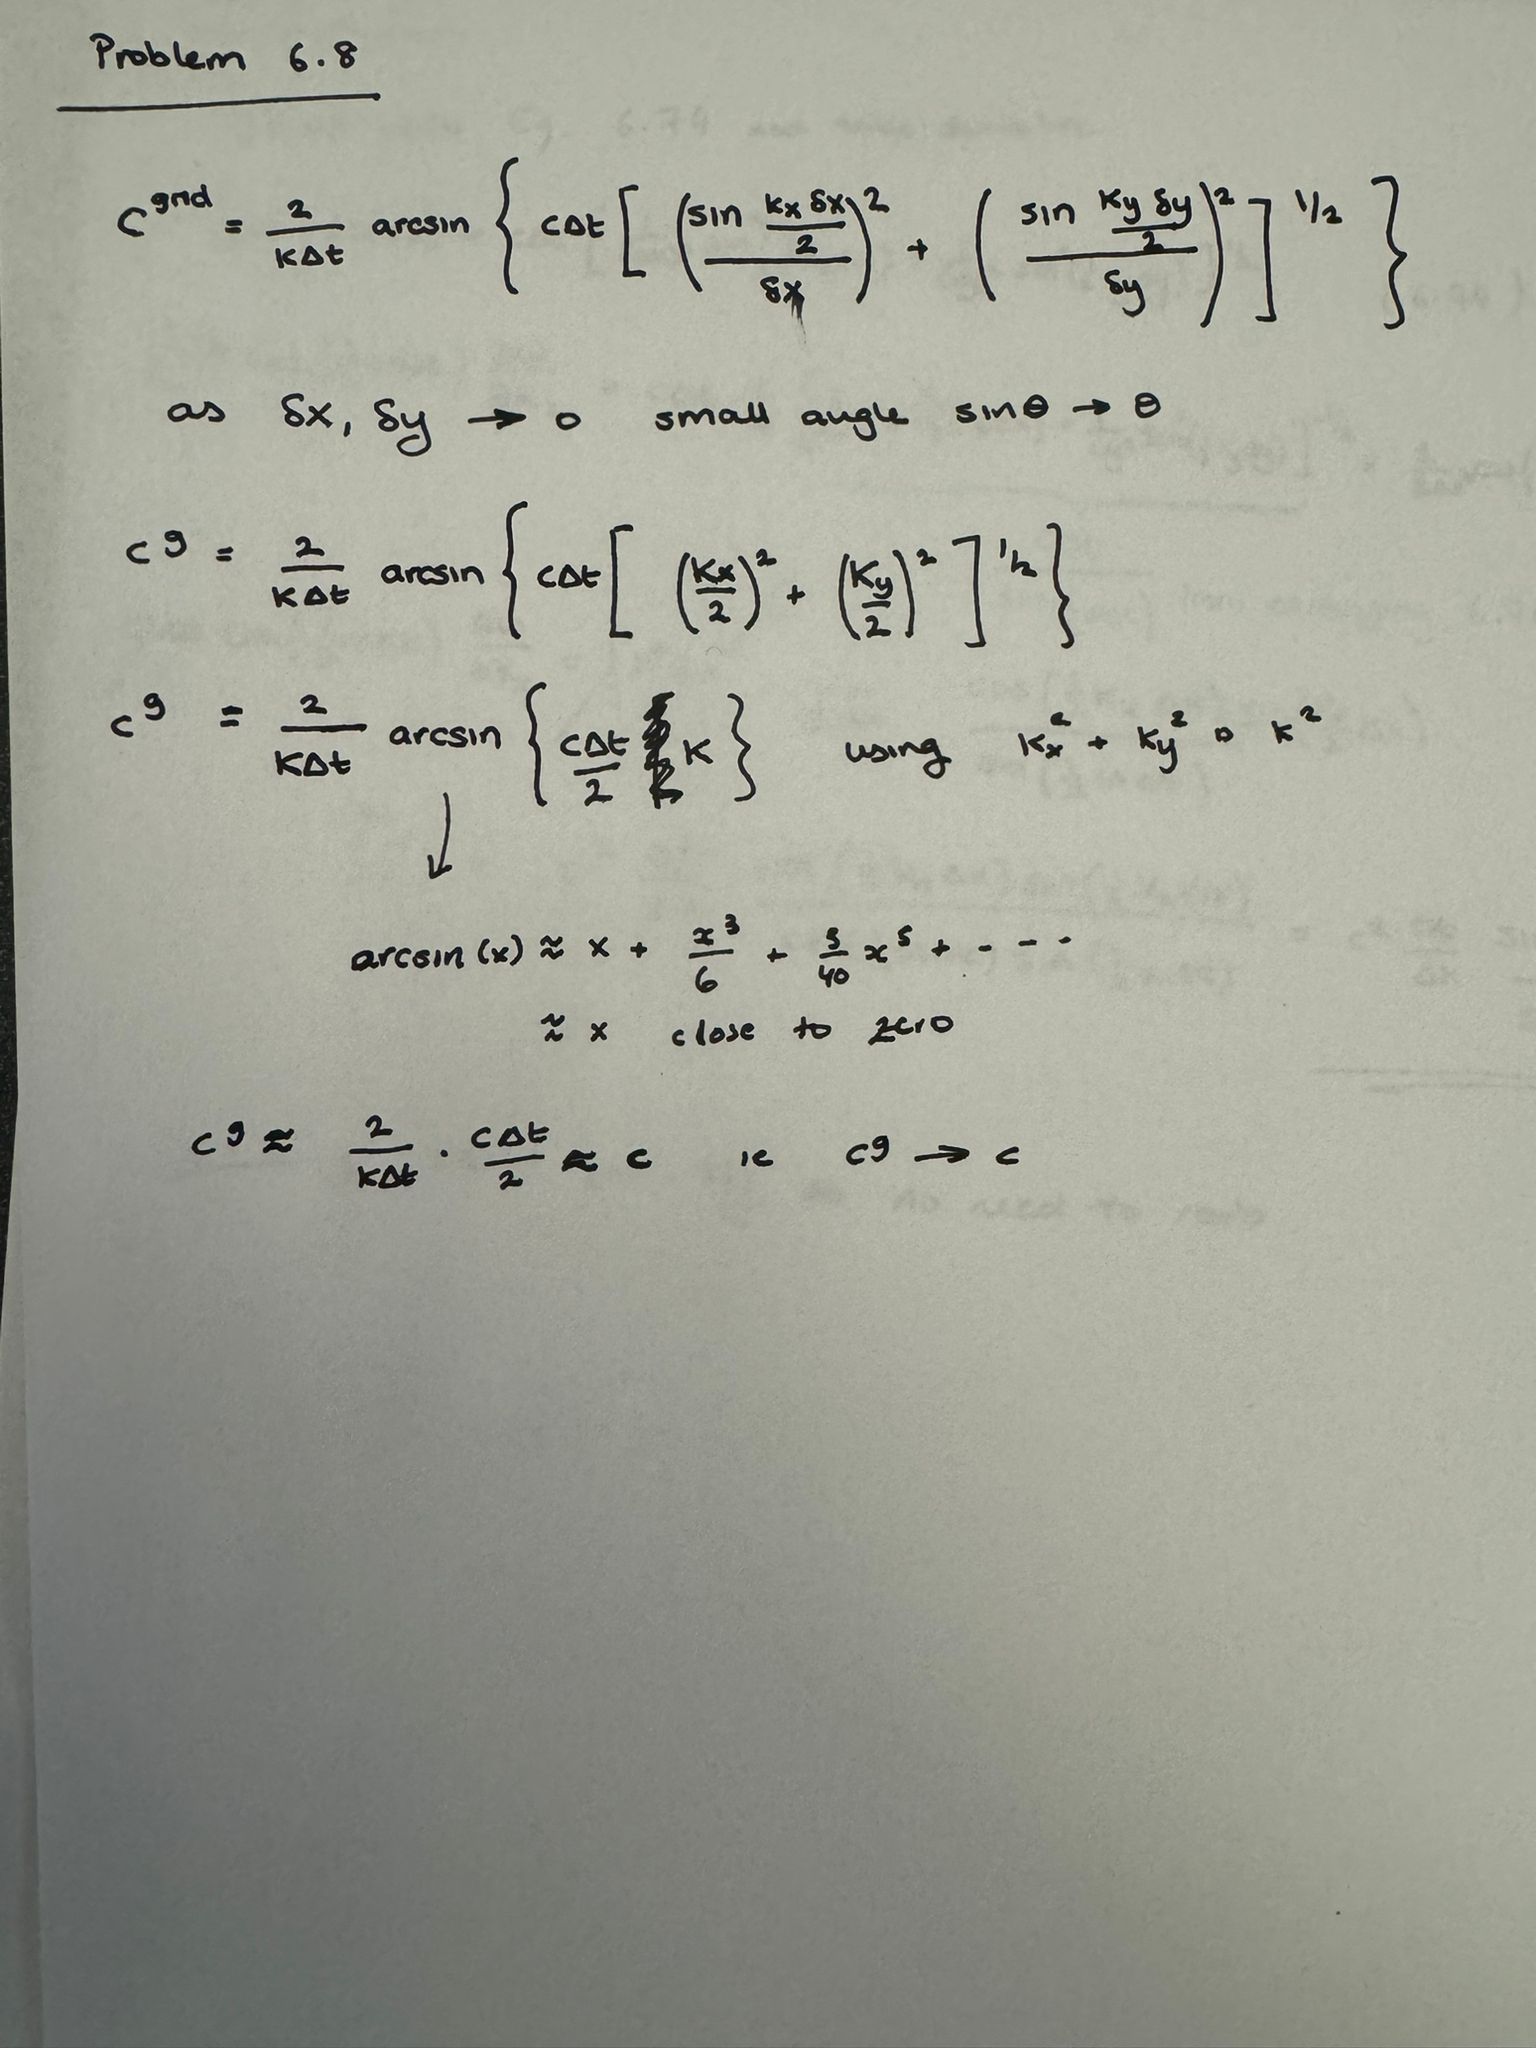 Problem 6.8
c^grid = 2/(kΔt) arcsin { cΔt [ ( (sin (kx δx)/2) / δx )^2 + ( (sin (ky δy)/2) / δy )^2 ]^1/2 }
as δx, δy → 0 small angle sinθ → θ
c^g = 2/(kΔt) arcsin { cΔt [ (kx/2)^2 + (ky/2)^2 ]^1/2 }
c^g = 2/(kΔt) arcsin { (cΔt/2) k } using kx^2 + ky^2 = k^2
↓
arcsin(x) ≈ x + x^3/6 + 3/40 x^5 + - - -
≈ x close to zero
c^g ≈ 2/(kΔt) · cΔt/2 ≈ c ie c^g → c